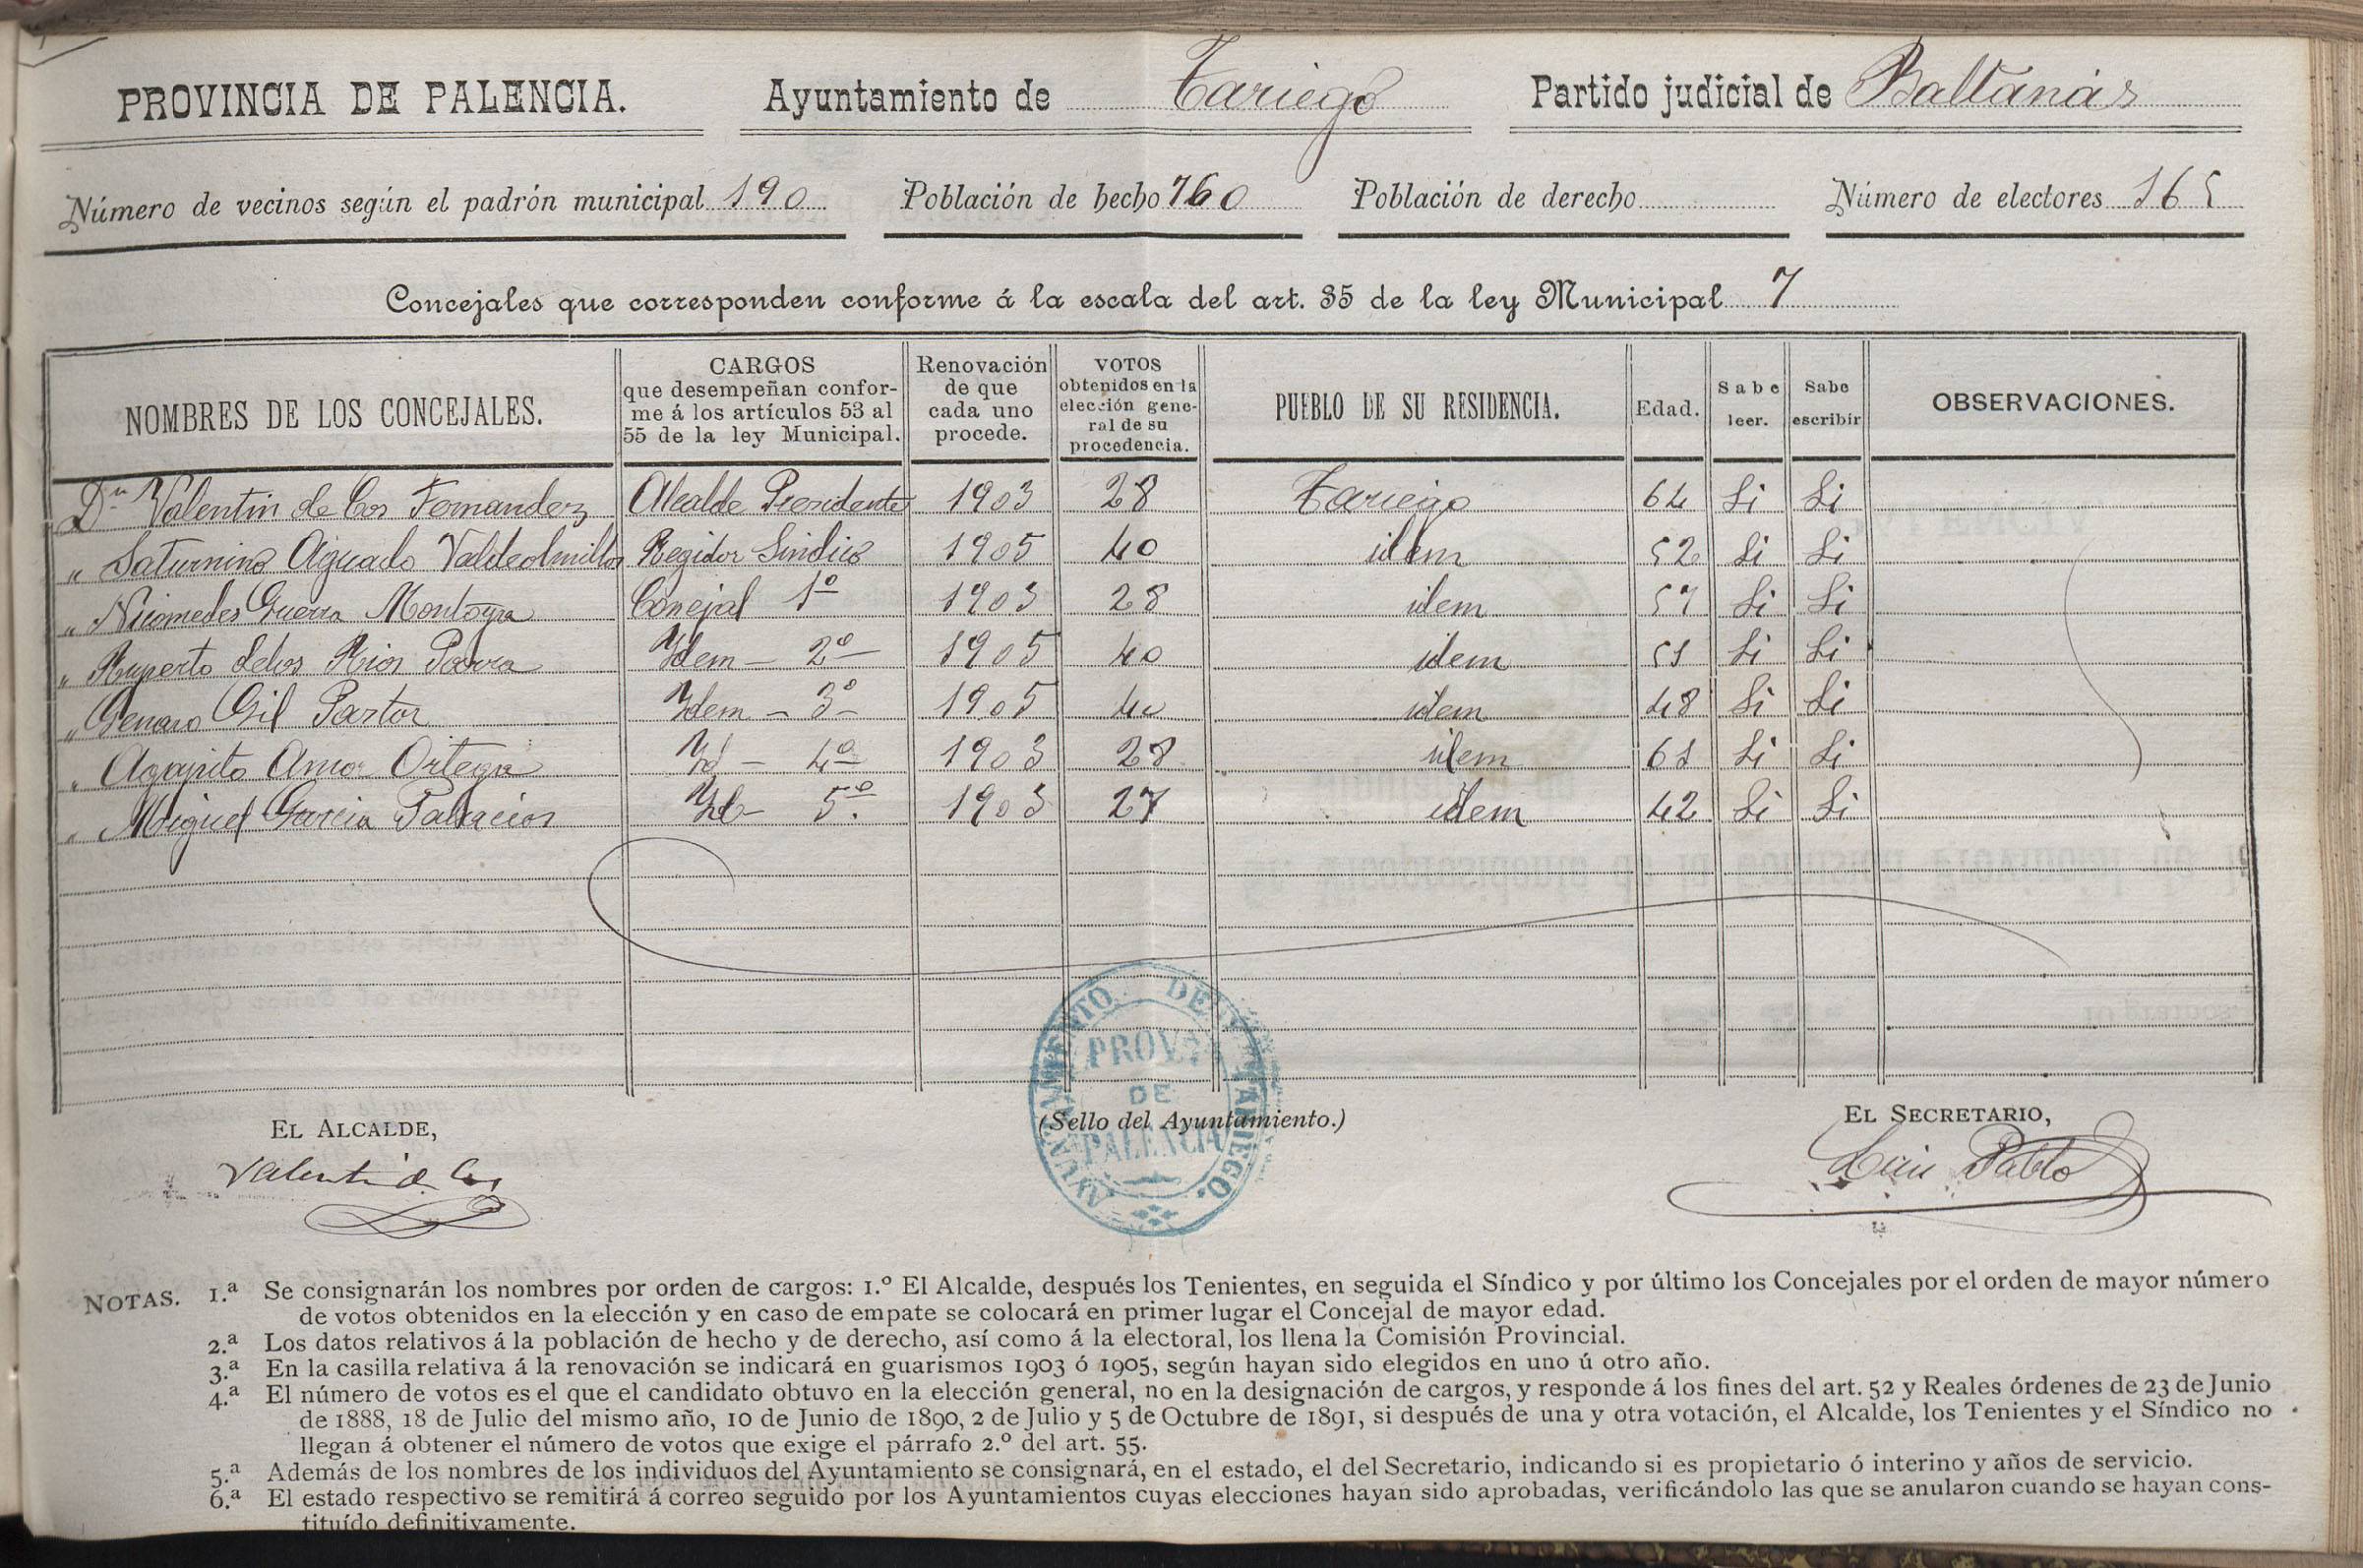 PROVINCIA DE PALENCIA. Ayuntamiento de Tariego Partido judicial de Baltanás
Número de vecinos según el padrón municipal 190 Población de hecho 760 Población de derecho Número de electores 165
Concejales que corresponden conforme á la escala del art. 35 de la ley Municipal 7
NOMBRES DE LOS CONCEJALES. CARGOS que desempeñan confor- me á los artículos 53 al 55 de la ley Municipal. Renovación de que cada uno procede. VOTOS obtenidos en la elección gene- ral de su procedencia. PUEBLO DE SU RESIDENCIA. Edad. Sabe leer. Sabe escribir OBSERVACIONES.
Dn Valentin de Cos Fernandez Alcalde Presidente 1903 28 Tariego 64 Si Si
" Saturnino Aguado Valdeolmillos Regidor Sindico 1905 40 idem 52 Si Si
" Nicomedes Guerra Montoya Conejal 1º 1903 28 idem 57 Si Si
" Ruperto delos Rios Parra Ydem - 2º 1905 40 idem 51 Si Si
" Genaro Gil Pastor Ydem - 3º 1905 40 idem 48 Si Si
" Agapito Amor Ortega Yd - 4º 1903 28 idem 61 Si Si
" Miguel Garcia Palacios Yd - 5º 1903 27 idem 42 Si Si
EL ALCALDE, (Sello del Ayuntamiento.) EL SECRETARIO,
AYUNTAMIENTO DE TARIEGO.
PROVA
DE
PALENCIA
Valentin d Cos Pablo
NOTAS. 1.ª Se consignarán los nombres por orden de cargos: 1.º El Alcalde, después los Tenientes, en seguida el Síndico y por último los Concejales por el orden de mayor número
de votos obtenidos en la elección y en caso de empate se colocará en primer lugar el Concejal de mayor edad.
2.ª Los datos relativos á la población de hecho y de derecho, así como á la electoral, los llena la Comisión Provincial.
3.ª En la casilla relativa á la renovación se indicará en guarismos 1903 ó 1905, según hayan sido elegidos en uno ú otro año.
4.ª El número de votos es el que el candidato obtuvo en la elección general, no en la designación de cargos, y responde á los fines del art. 52 y Reales órdenes de 23 de Junio
de 1888, 18 de Julio del mismo año, 10 de Junio de 1890, 2 de Julio y 5 de Octubre de 1891, si después de una y otra votación, el Alcalde, los Tenientes y el Síndico no
llegan á obtener el número de votos que exige el párrafo 2.º del art. 55.
5.ª Además de los nombres de los individuos del Ayuntamiento se consignará, en el estado, el del Secretario, indicando si es propietario ó interino y años de servicio.
6.ª El estado respectivo se remitirá á correo seguido por los Ayuntamientos cuyas elecciones hayan sido aprobadas, verificándolo las que se anularon cuando se hayan cons-
tituído definitivamente.